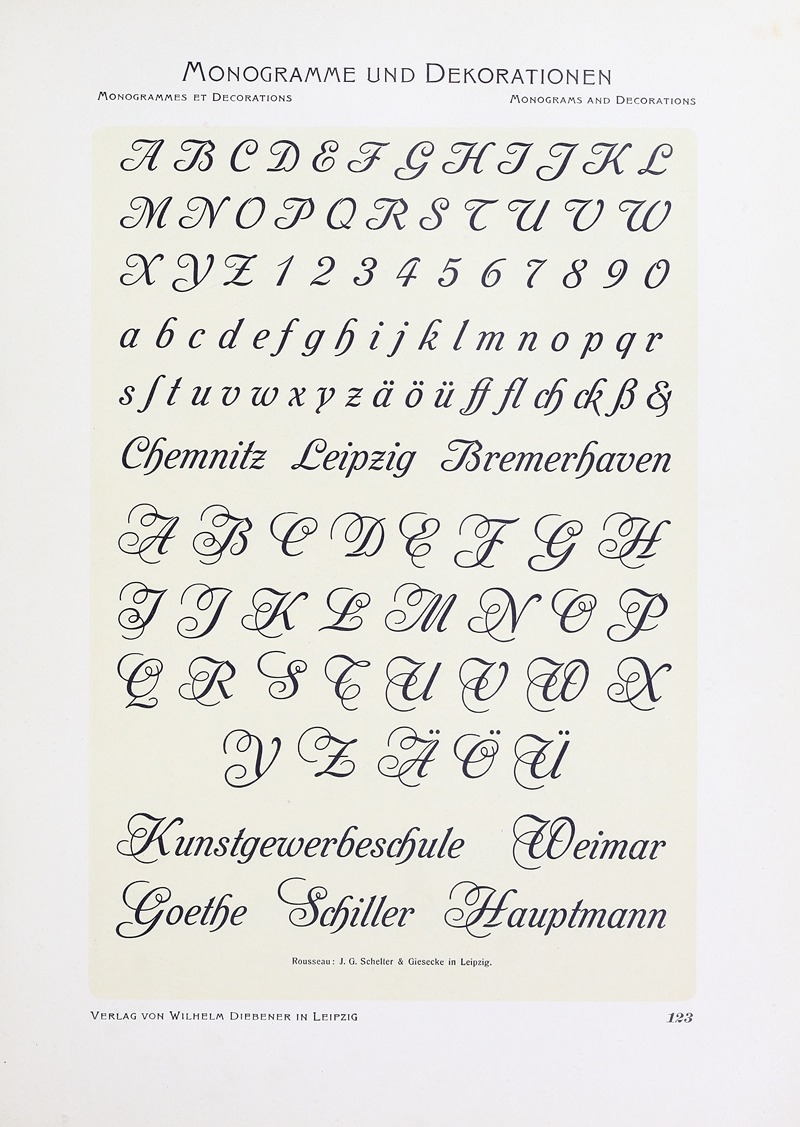 Monogramme und Dekorationen
Monogrammes et Decorations
Monograms and Decorations
A B C D E F G H I J K L
M N O P Q R S T U V W
X Y Z 1 2 3 4 5 6 7 8 9 0
a b c d e f g h i j k l m n o p q r
s ſ t u v w x y z ä ö ü ff fl ch ck ß &
Chemnitz Leipzig Bremerhaven
A B C D E F G H
I J K L M N O P
Q R S T U V W X
Y Z Ä Ö Ü
Kunstgewerbeschule Weimar
Goethe Schiller Hauptmann
Rousseau: J. G. Schelter & Giesecke in Leipzig.
Verlag von Wilhelm Diebener in Leipzig
123